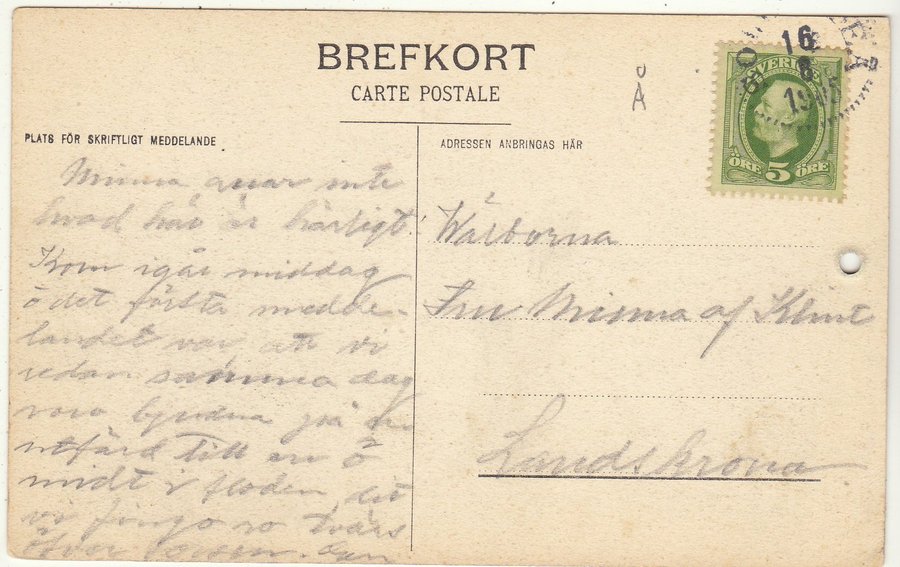 BREFKORT
CARTE POSTALE
Å
SVERIGE
ÖRE 5 ÖRE
16
8
PLATS FÖR SKRIFTLIGT MEDDELANDE
Minna anar inte
hvad här är härligt.
Kom igår middag
o det första medde-
landet var att vi
redan samma dag
voro bjudna på en
utfärd till en ö
midt i floden, dit
vi fingo ro tvärs
öfver
ADRESSEN ANBRINGAS HÄR
Välborna
Fru Minna af Klint
Landskrona